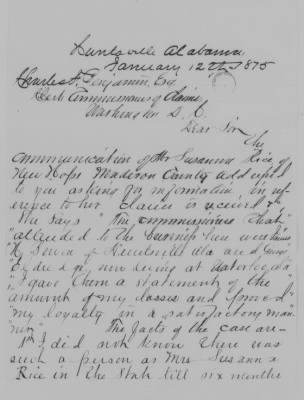 Huntsville Alabama
January 12th 1875
Charles F. Benjamin, Esq
Clerk Commissioners of Claims
Washington D. C.
Dear Sir
The
communication of Mrs Susanna Rice of
New Hope Madison County addressed
to you asking for information in ref
erence to her claim is received
She says "The commissioners that"
"attended to the business here were
of Huntsville Ala and
now living at
"I gave them a statement of the
amount of my losses and proved"
"my loyalty in a satisfactory man
ner" The facts of the case are
1st I did not know there was
such a person as Mrs Susanna
Rice in the State till six months